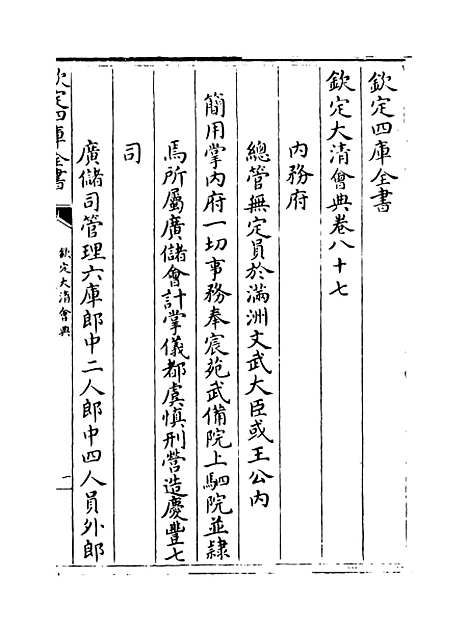 欽定四庫全書
欽定大清會典卷八十七
內務府
總管無定員於滿洲文武大臣或王公內
簡用掌內府一切事務奉宸苑武備院上駟院並隸
焉所屬廣儲會計掌儀都虞慎刑營造慶豐七
司
廣儲司管理六庫郎中二人郎中四人員外郎
欽定四庫全書
欽定大清會典
一